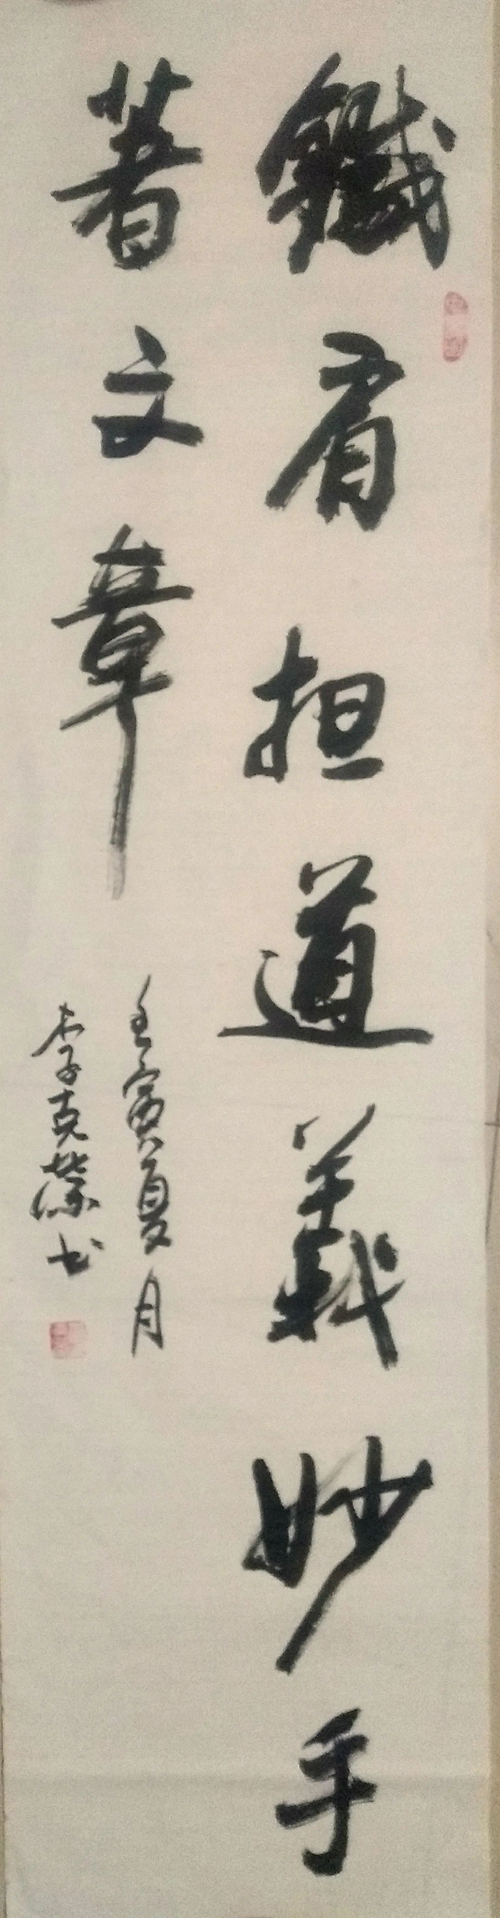 鐵肩担道義妙手
著文章
壬寅夏月
李克榮书